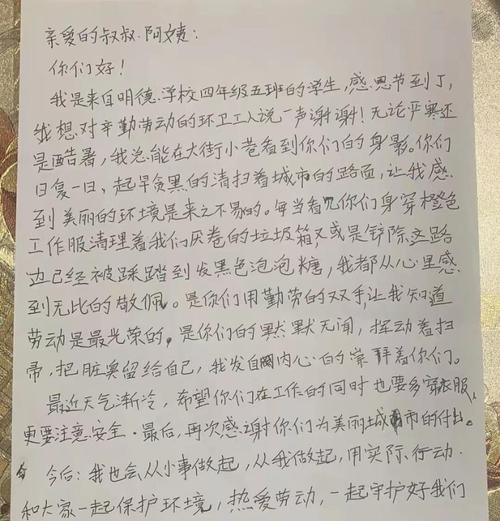 亲爱的叔叔.阿姨：
你们好！
我是来自明德学校四年级五班的学生，感恩节到了，
我想对辛勤劳动的环卫工人说一声谢谢！无论严寒还
是酷暑，我总能在大街小巷看到你们的身影。你们
日复一日、起早贪黑的清扫着城市的路面，让我感
到美丽的环境是来之不易的。每当看见你们身穿橙色
工作服清理着我们厌卷的垃圾箱，又或是铲除这路
边已经被踩踏到发黑色泡泡糖，我都从心里感
到无比的敬佩。是你们用勤劳的双手，让我知道
劳动是最光荣的。是你们的默默无闻，挥动着扫
帚，把脏臭留给自己，我发自内心的崇拜着你们。
最近天气渐冷，希望你们在工作的同时也要多穿衣服，
更要注意安全.最后，再次感谢你们为美丽城市的付出。
今后：我也会从小事做起，从我做起，用实际行动.
和大家一起保护环境，热爱劳动，一起守护好我们